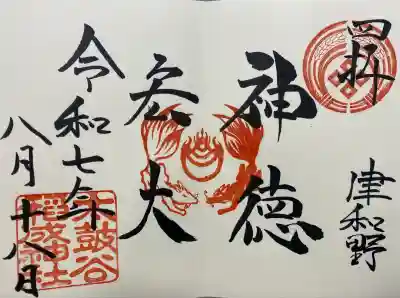 津和野
神徳
宏大
令和七年
八月十八日
太鼓谷
稲成神社